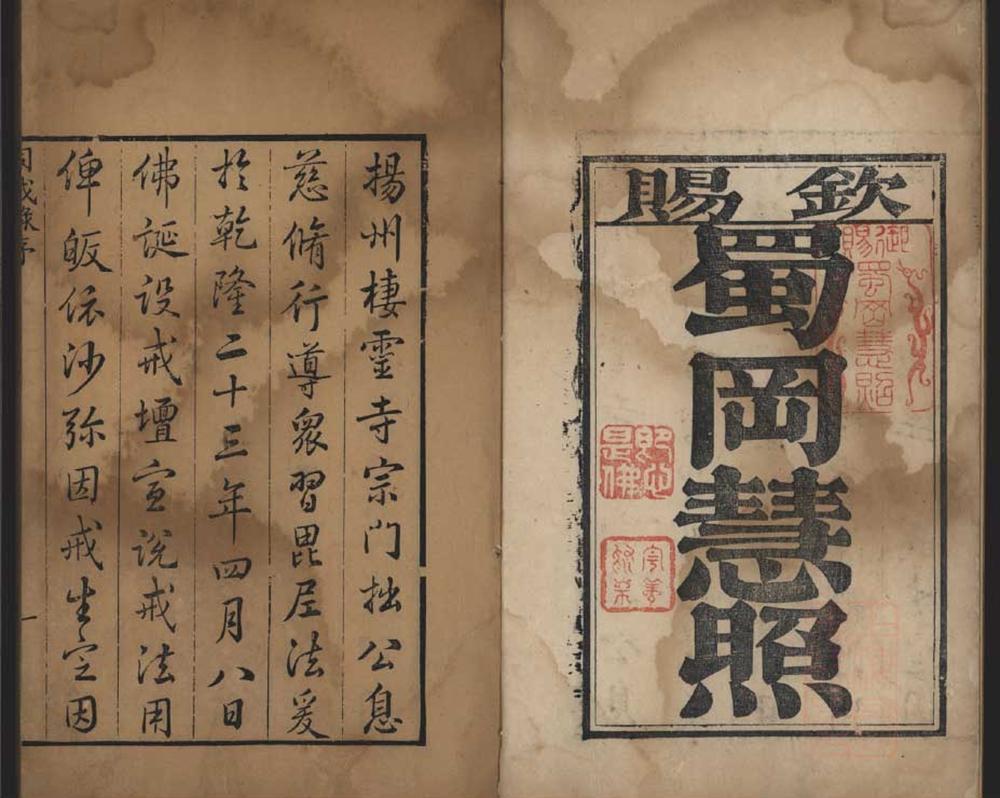 欽賜
蜀岡慧照
御賜
蜀岡慧照
即心
是佛
揚州棲霛寺宗門拙公息
慈脩行導衆習毘尼法爰
於乾隆二十三年四月八日
佛誕设戒壇宣说戒法用
俾皈依沙弥因戒生定因
同戒錄序
一